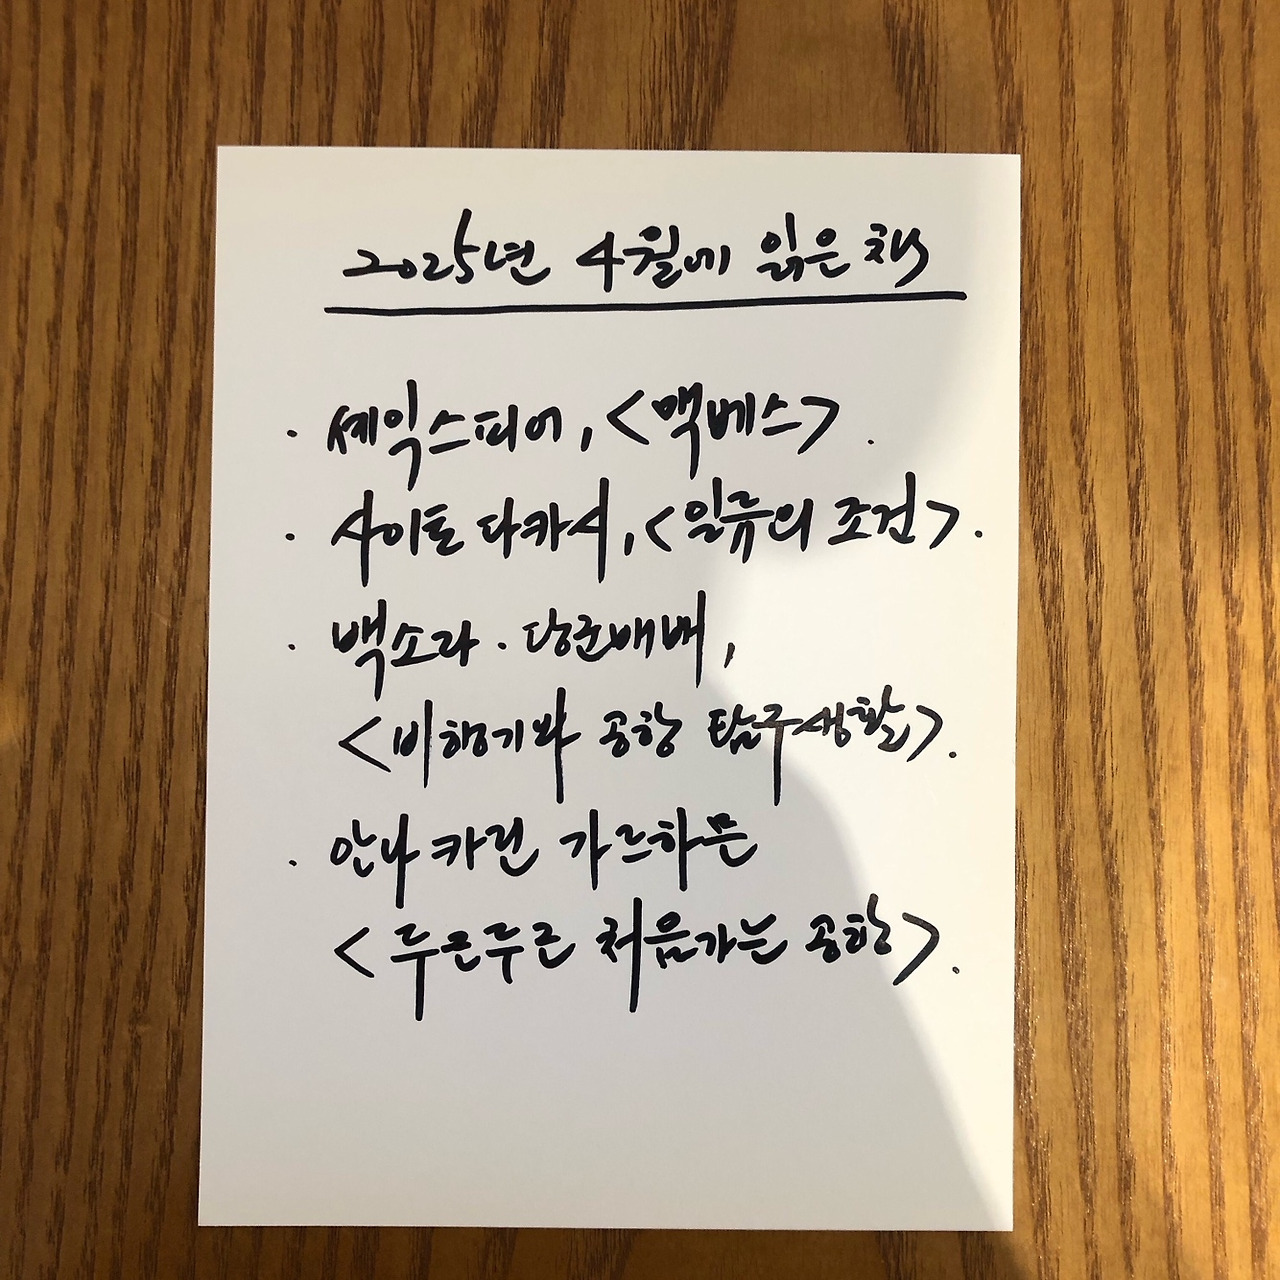 2025년 4월에 읽은 책
· 셰익스피어, <맥베스>.
· 사이토 다카시, <일류의 조건>.
· 백소라 · 당근배배,
<비행기와 공항 탐구생활>.
· 안나 카린 가르하믄
<두근두근 처음가는 공항>.